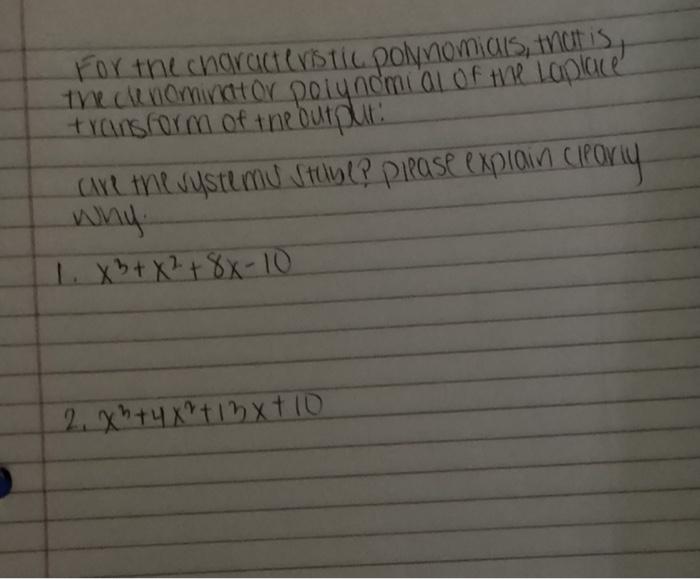 For the characteristic polynomials, that is,
the denominator polynomial of the Laplace
transform of the output:
are the systems stable? please explain clearly
why.
1. x³+x²+8x-10
2. x³+4x²+13x+10